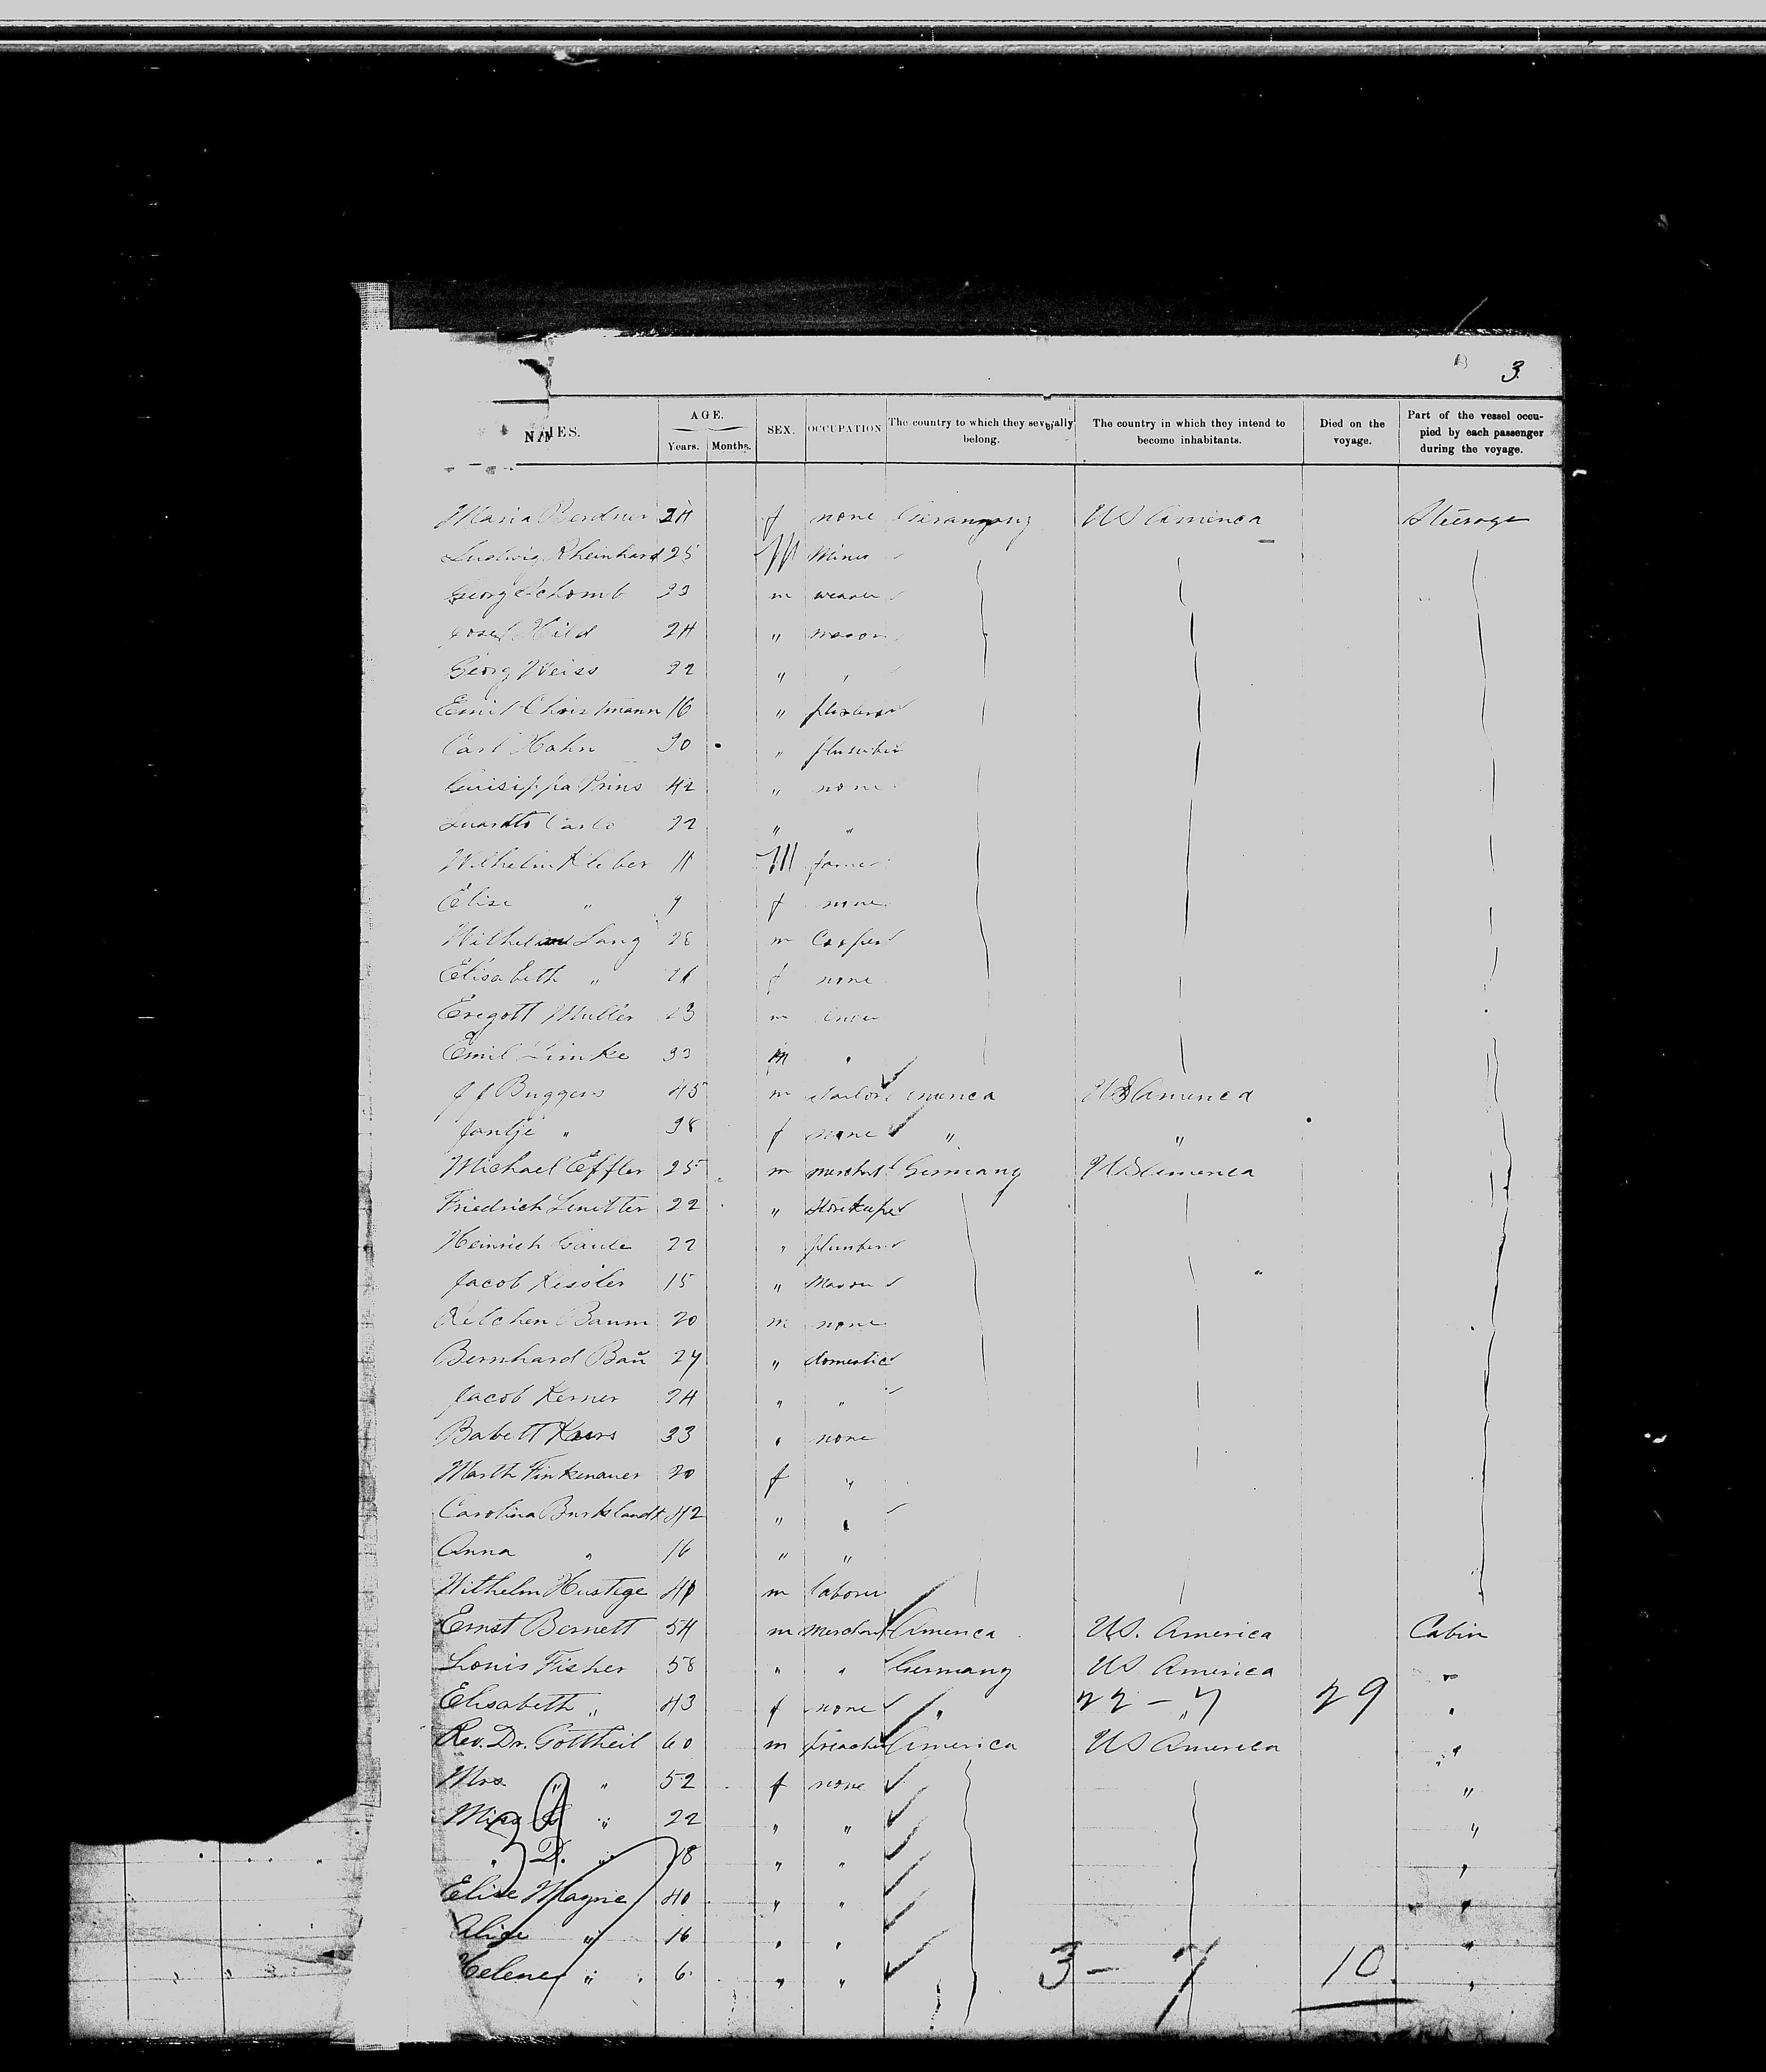 3.
NAMES. AGE. Years. Months. SEX. OCCUPATION The country to which they severally belong. The country in which they intend to become inhabitants. Died on the voyage. Part of the vessel occupied by each passenger during the voyage.
Maria Berdner 24 f none Germany US America Steerage
Ludwig Rheinhard 25 M Miner
Georg Schomb 33 m weaver
Josef Hild 24 " mason
Georg Weiss 22 "
Emil Christmann 16 "
Carl Hahn 30 "
Guiseppa Prins 42 " none
Carlo 22 " "
Wilhelm Kleber 11 M
Elise " 9 f none
Wilhelm Lang 28 m Cooper
Elisabeth " 26 f none
Eregott Muller 23 m
Emil Limke 33 m "
J J Buggers 45 m Sailor America US America
Jantje " 38 f none " "
Michael Effler 25 m merchant Germany US America
Friedrich 22 " Storekeeper
Heinrich Gaule 22 "
Jacob Kessler 15 " Mason
Ketchen Baum 20 m none
Bernhard Baū 24 " domestic
Jacob Kerner 24 " "
Babett 33 " none
Marth Finkenauer 20 f "
Carolina 42 " "
Anna " 16 " "
Wilhelm Hustege 40 m laborer
Ernst Bernett 54 m merchant America US. America Cabin
Louis Fisher 58 " " Germany US America "
Elisabeth " 43 f none " " "
22 - 7 29
Rev. Dr. Gottheil 60 m preacher America US America "
Mrs " " 52 f none "
Miss " 22 " " "
" D. " 18 " " "
39
Elise Magnie 40 " " "
Alice " 16 " " "
Helene " 6 " " "
3 - 7 10